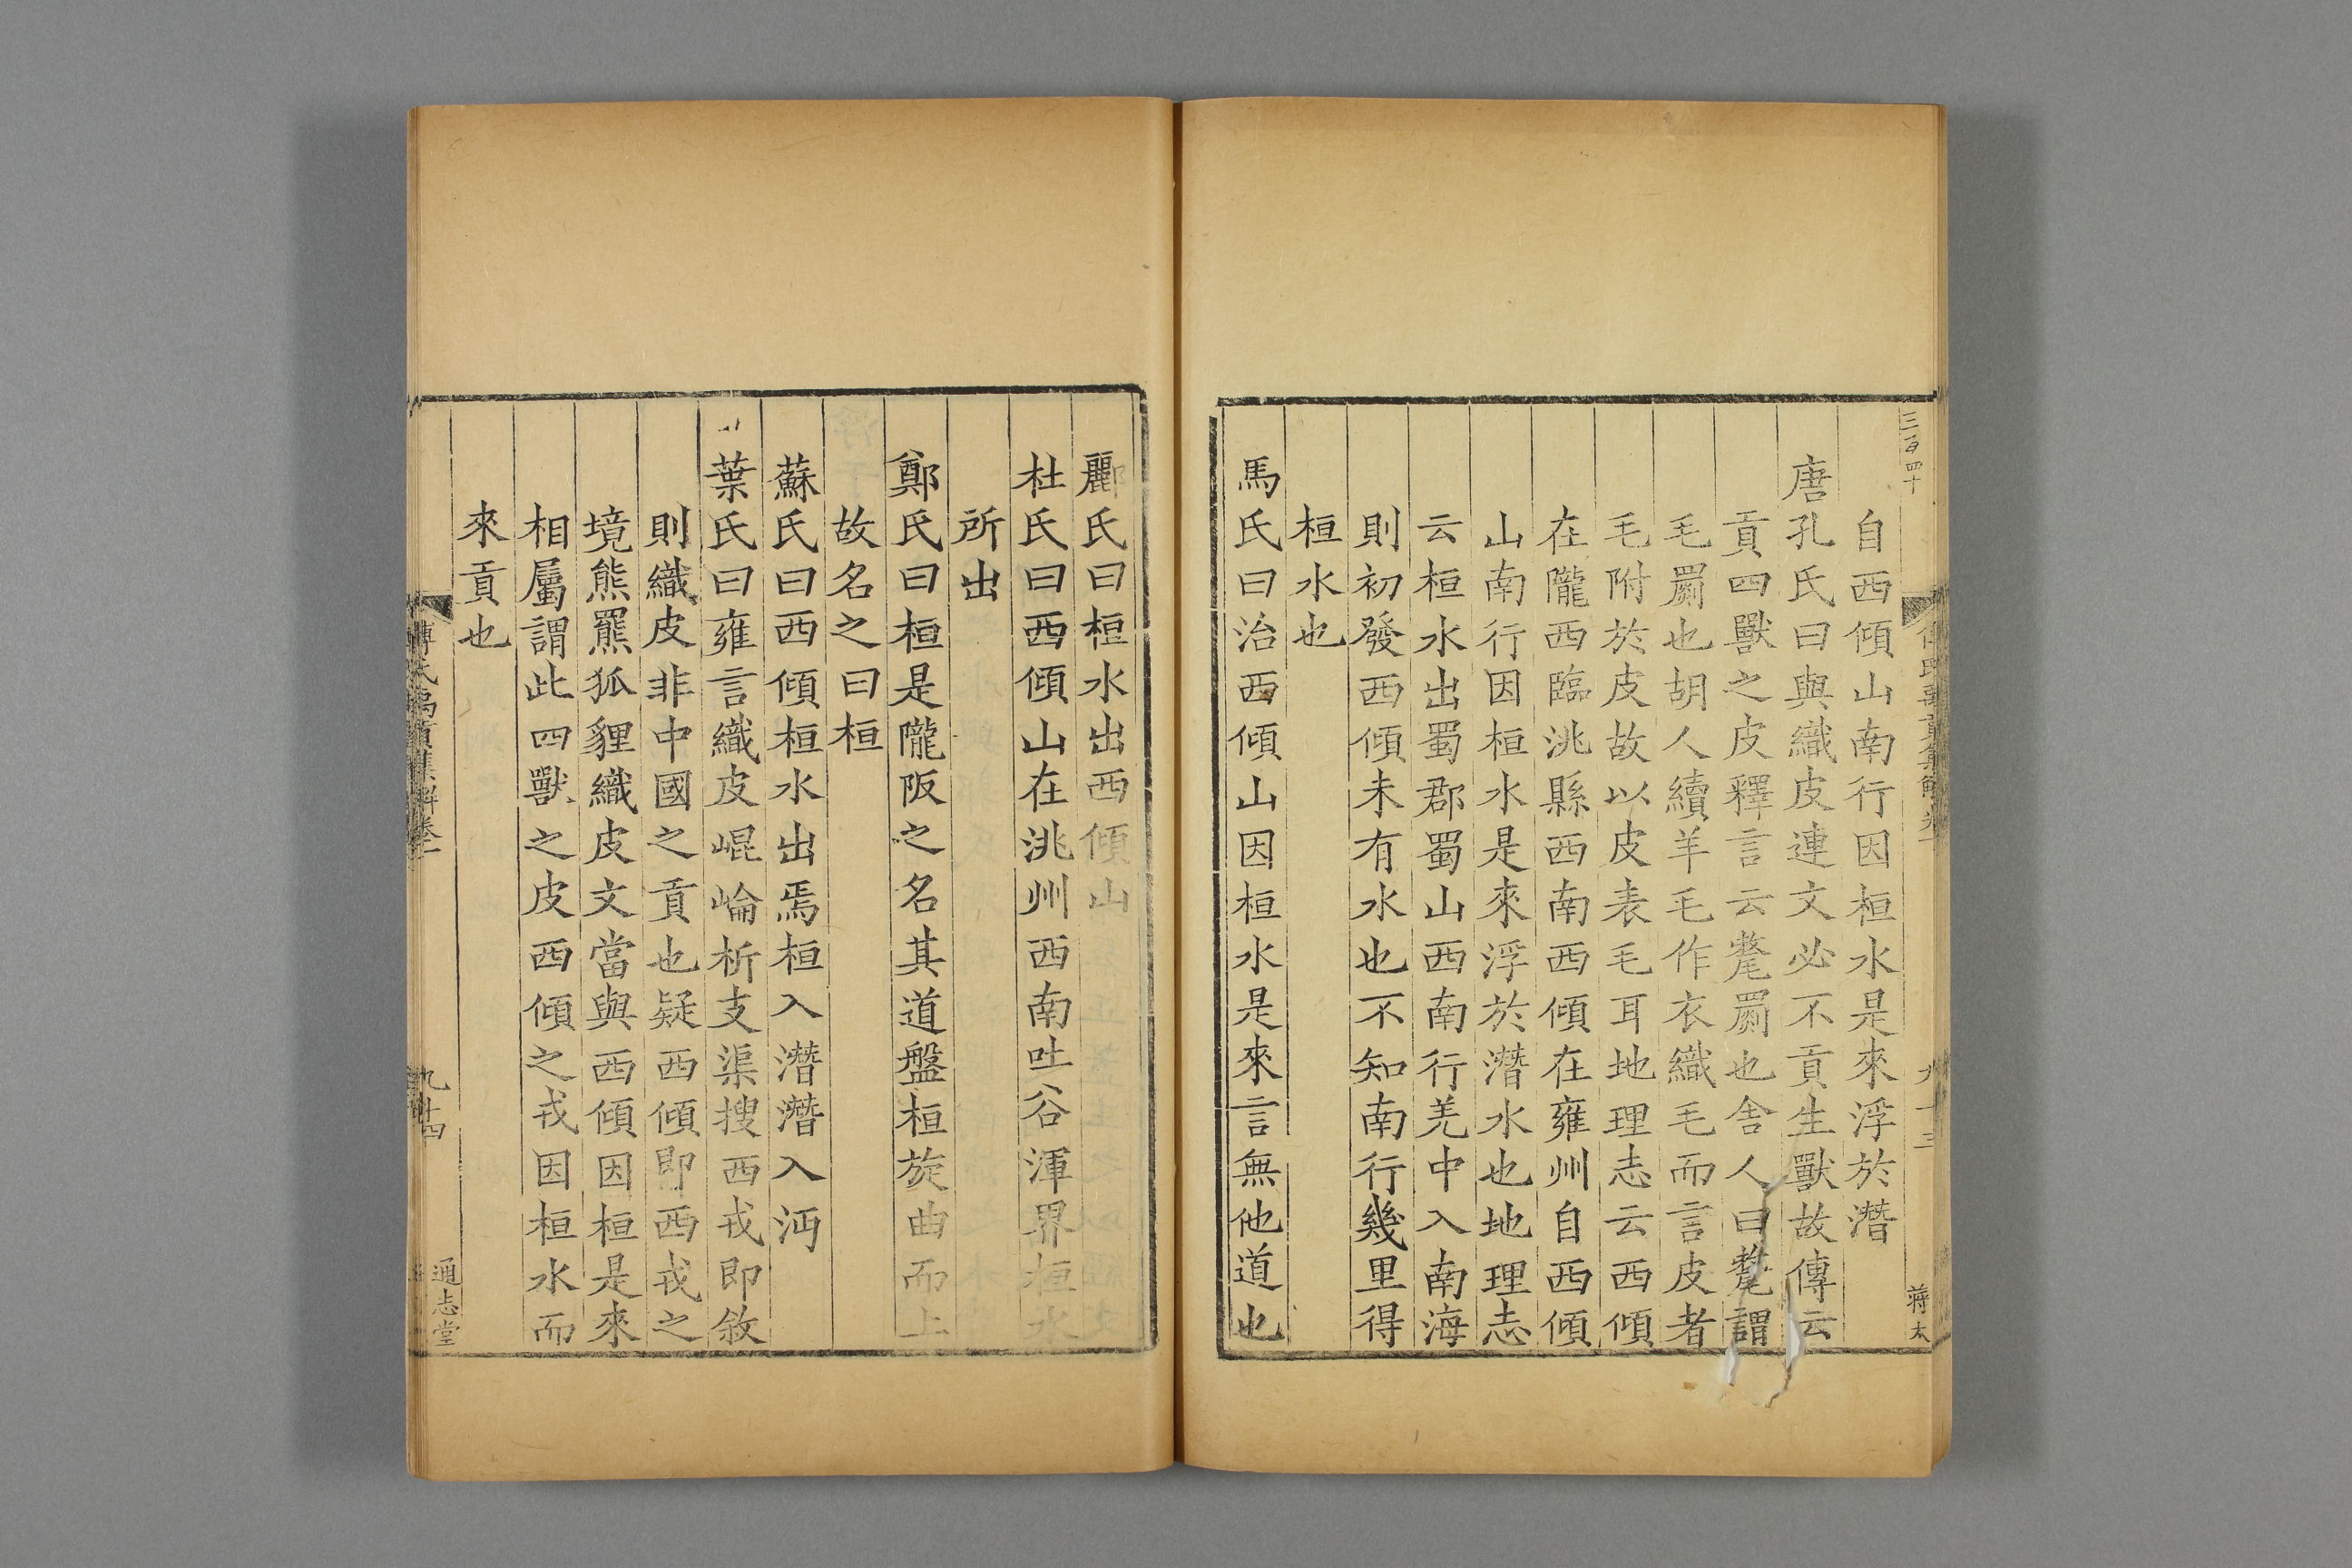 三百四十
自西傾山南行因桓水是來浮於潛
唐孔氏曰與織皮連文必不貢生獸故傳云
貢四獸之皮釋言云氂罽也舍人曰氂謂
毛罽也胡人續羊毛作衣織毛而言皮者
毛附於皮故以皮表毛耳地理志云西傾
在隴西臨洮縣西南西傾在雍州自西傾
山南行因桓水是來浮於潛水也地理志
云桓水出蜀郡蜀山西南行羌中入南海
則初發西傾未有水也不知南行幾里得
桓水也
馬氏曰治西傾山因桓水是來言無他道也
蔣太
酈氏曰桓水出西傾山
杜氏曰西傾山在洮州西南吐谷渾界桓水
所出
鄭氏曰桓是隴阪之名其道盤桓旋曲而上
故名之曰桓
蘇氏曰西傾桓水出焉桓入潛潛入沔
葉氏曰雍言織皮崐崘析支渠搜西戎即敘
則織皮非中國之貢也疑西傾即西戎之
境熊羆狐貍織皮文當與西傾因桓是來
相屬謂此四獸之皮西傾之戎因桓水而
來貢也
九十四
通志堂